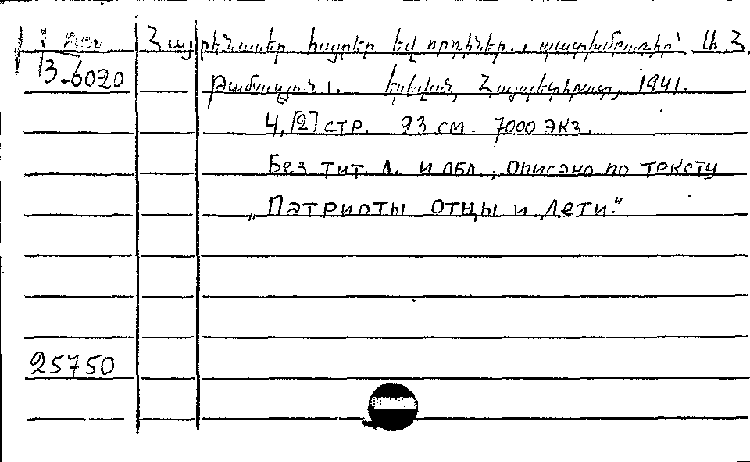 Հայրենասեր հայրեր եվ որդիներ. պատխմբագիր՝ Ա. Հ.
3-6020
Թամազյան. Երեվան, Հայպետհրատ, 1941.
4, [2] стр. 23 см. 7000 экз.
Без тит. л. и обл., описано по тексту
„Патриоты отцы и дети."
25750